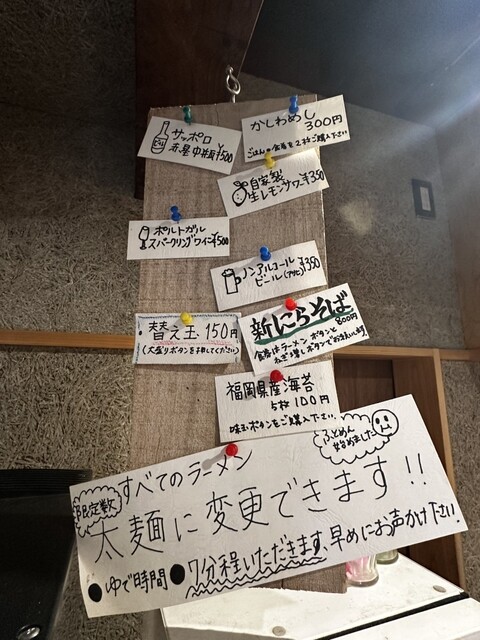 サッポロ
赤星 中瓶 ¥500
かしわめし
300円
ごはんの食券を2枚ご購入下さい
自家製
生レモンサワー ¥350
ポルトガル
スパークリングワイン ¥500
ノンアルコール
ビール(アサヒ) ¥350
替え玉 150円
(大盛りボタンを押してください)
新にらそば
800円
食券はラーメンボタンと
ねぎ増しボタンでお願いします。
福岡県産海苔
5枚 100円
味玉ボタンをご購入下さい。
ふとめん
始めました
限定数
すべてのラーメン
太麺に変更できます!!
●ゆで時間● 7分程いただきます、早めにお声かけ下さい。